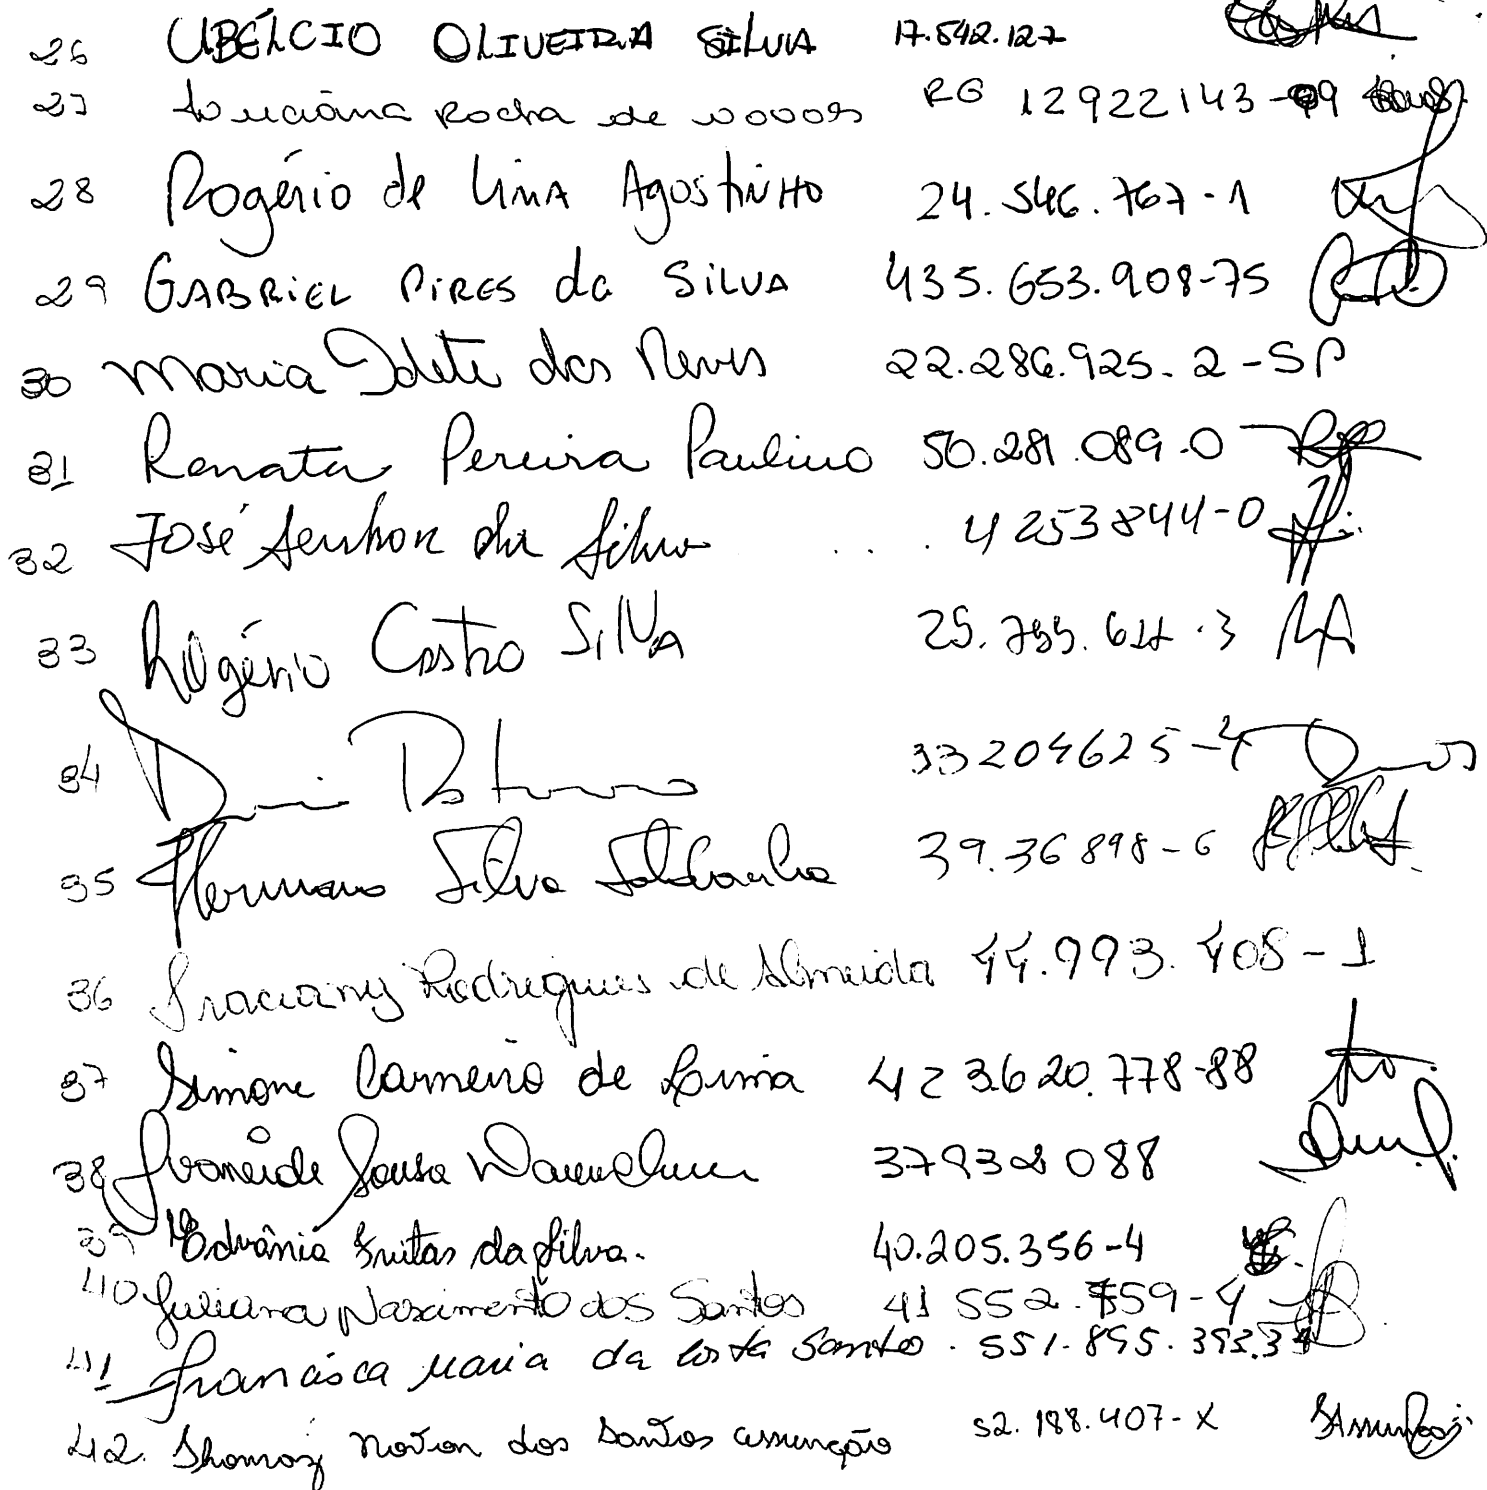 26 UBÉLCIO OLIVEIRA SILVA 17.542.127
27 Luciana Rocha de RG 12922143-99
28 Rogério de Lima Agostinho 24.546.767-1
29 GABRIEL PIRES da SILVA 435.653.908-75
30 Maria Idete das Neves 22.286.925-2-SP
31 Renata Pereira Paulino 50.281.089-0
32 José Senhor da Silva 4253844-0
33 Rogério Castro Silva 25. .3
34 33204625-4
35 Hermano Silva 39.36898-6
36 Graciany Rodrigues de Almeida 44.993.408-1
37 Simone Carneiro de Lima 423.620.778-88
38 Ivoneide Sousa 37932088
39 Edvânia Freitas da Silva. 40.205.356-4
40 Juliana Nascimento dos Santos 41 552.759-4
41 Francisca Maria da Costa Santos. 551.895.393.34
42. dos Santos assunção 52.188.407-X